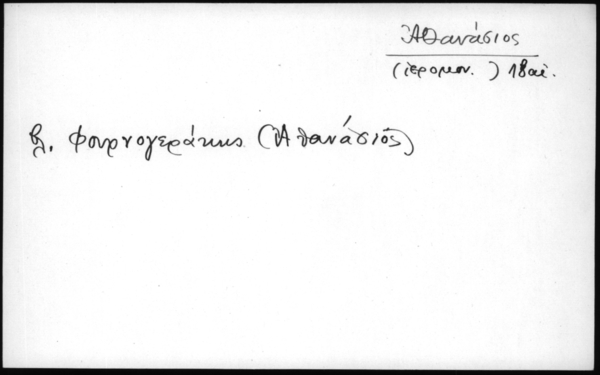 Ἀθανάσιος
(ἱερομον.) 18 αἰ.
βλ. Φουρνογεράκης (Ἀθανάσιος)